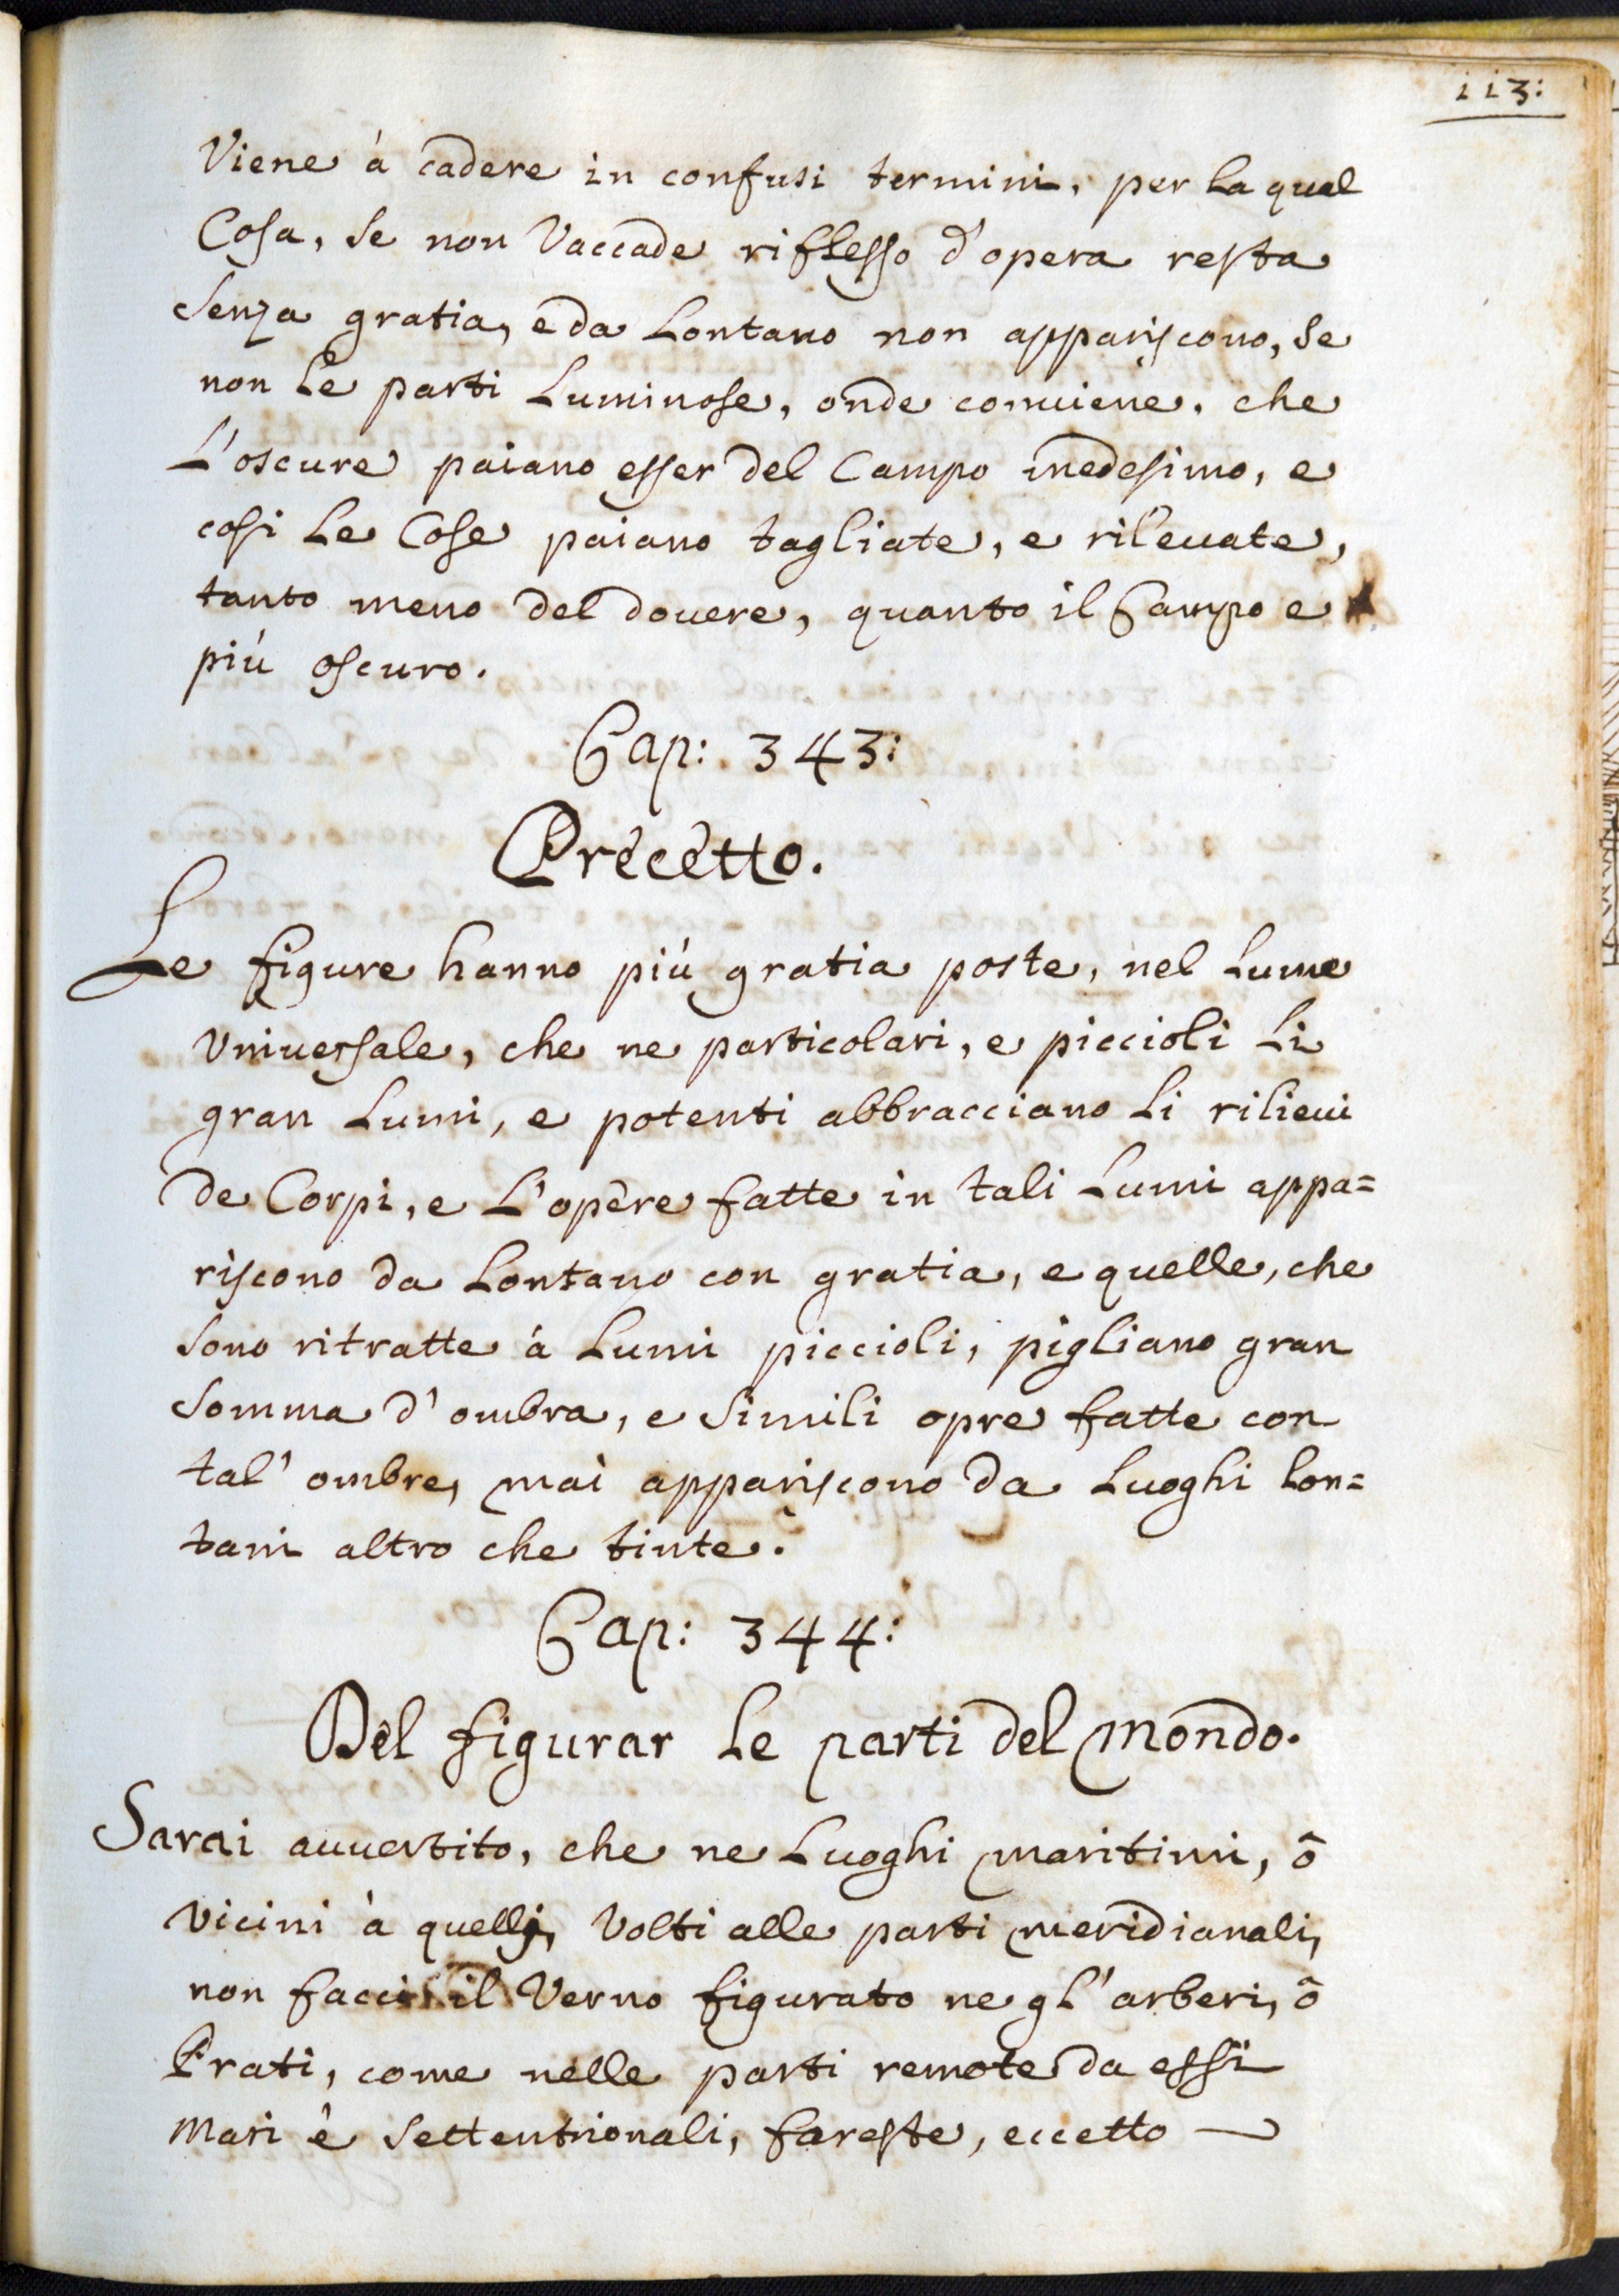 113:
Viene à cadere in confusi termini, per la qual
Cosa, se non Vaccade riflesso d'opera resta
senza gratia, e da Lontano non appariscono, se
non Le parti Luminose, onde conuiene, che
L'oscure paiano esser del Campo medesimo, e
cosi Le Cose paiano tagliate, e rileuate,
tanto meno del douere, quanto il Campo e
più oscuro.
Cap: 343:
Precetto.
Le figure hanno più gratia poste, nel Lume
Vniuersale, che ne particolari, e piccioli Li
gran Lumi, e potenti abbracciano Li rilieui
de Corpi, e L'opere fatte in tali Lumi appa=
riscono da Lontano con gratia, e quelle, che
sono ritratte à Lumi piccioli, pigliano gran
somma d'ombra, e simili opre fatte con
tal' ombre, mai appariscono da Luoghi Lon=
tani altro che tinte.
Cap: 344:
Del figurar Le parti del Mondo.
Sarai auuertito, che ne Luoghi maritimi, ò
vicini à quelli, Volti alle parti meridianali,
non facci il Verno figurato ne gl'arberi, ò
Prati, come nelle parti remote da essi
Mari è Settentrionali, fareste, eccetto